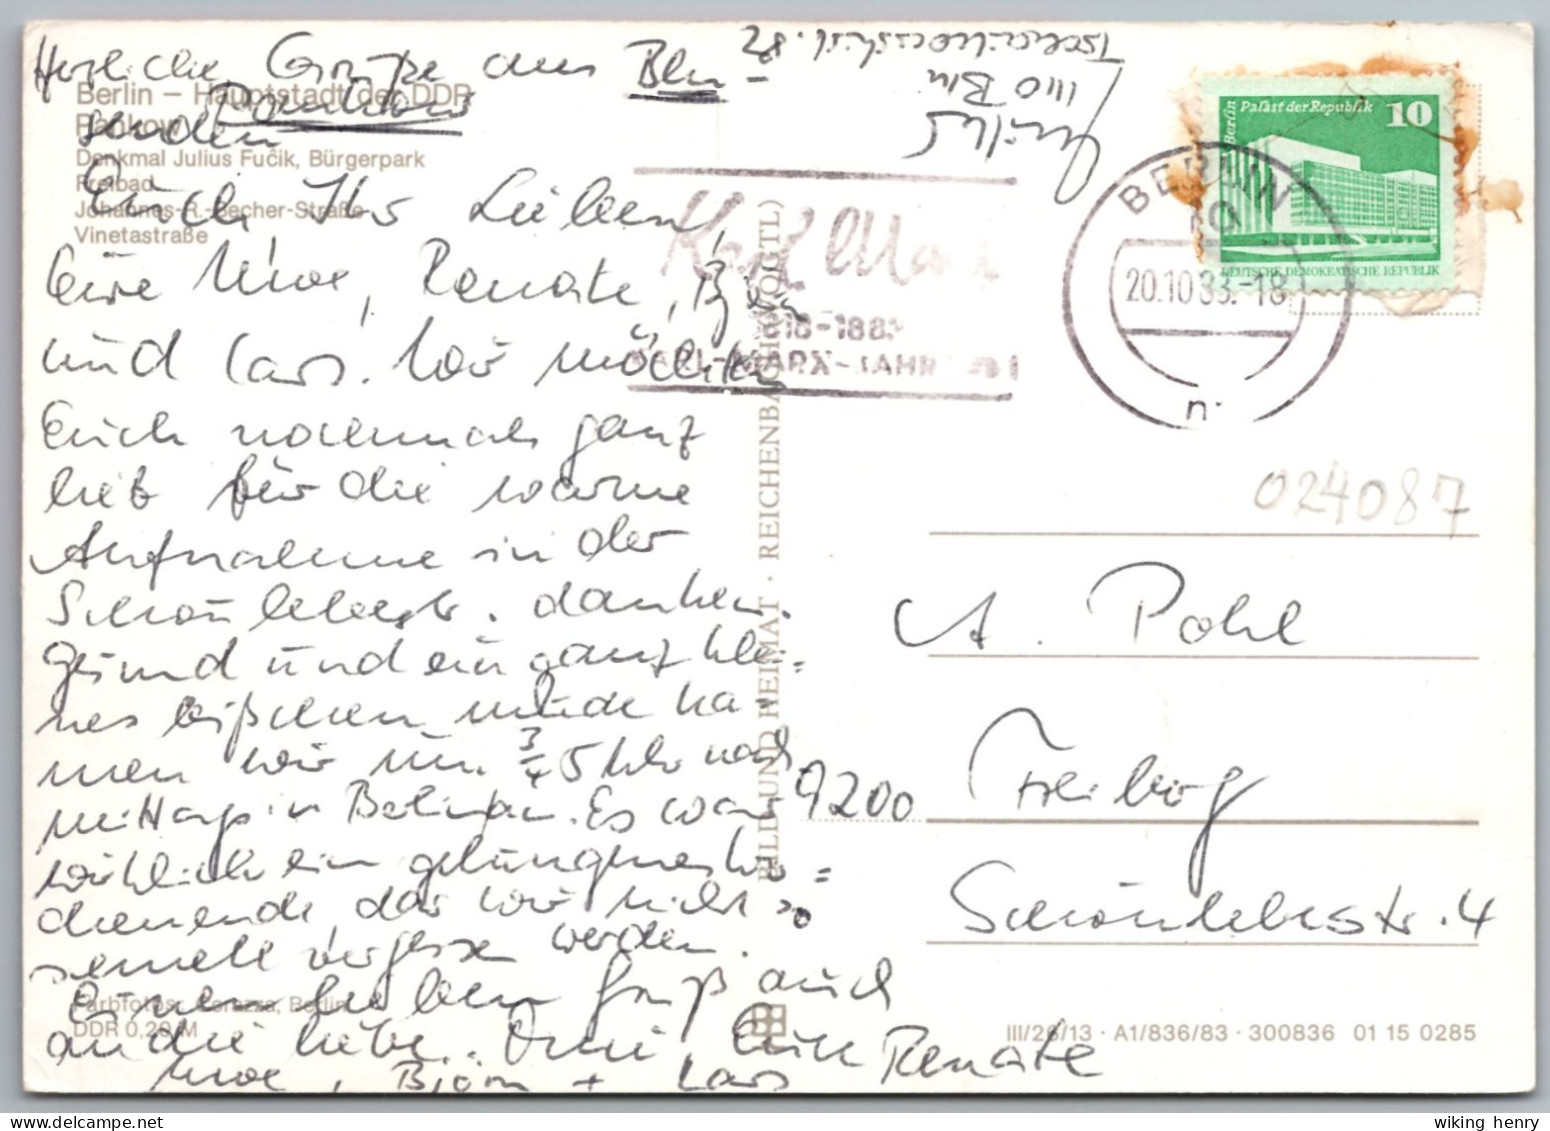 Herzliche Grüße aus Bln-
Pankow
senden
Berlin – Hauptstadt der DDR
Pankow
Denkmal Julius Fučik, Bürgerpark
Freibad
Johannes-R.-Becher-Straße
Vinetastraße
Euch Ihr Lieben,
Eure Uwe, Renate, Björn
und Lars. Wir möchten
Euch nochmals ganz
lieb für die warme
Aufnahme in der
Schönlebestr. danken.
Gesund und ein ganz klei=
nes bißchen müde ka=
men wir um 3/4 5 Uhr nach=
mittags in Berlin an. Es war
wirklich ein gelungenes Wo=
chenende, das wir nicht so
schnell vergessen werden.
Einen lieben Gruß auch
an die liebe Omi, Eure Renate
Uwe, Björn + Lars
Farbfotos: Corazza, Berlin
DDR 0,20 M
BILD UND HEIMAT · REICHENBACH (VOGTL)
1110 Bln
Karl Marx
1818-1883
KARL-MARX-JAHR DDR
BERLIN
10
20.10.83.-18
n
Berlin
Palast der Republik
10
DEUTSCHE DEMOKRATISCHE REPUBLIK
024087
A. Pohl
9200 Freiberg
Schönlebestr. 4
III/26/13 · A1/836/83 · 300836 01 15 0285
wiking henry